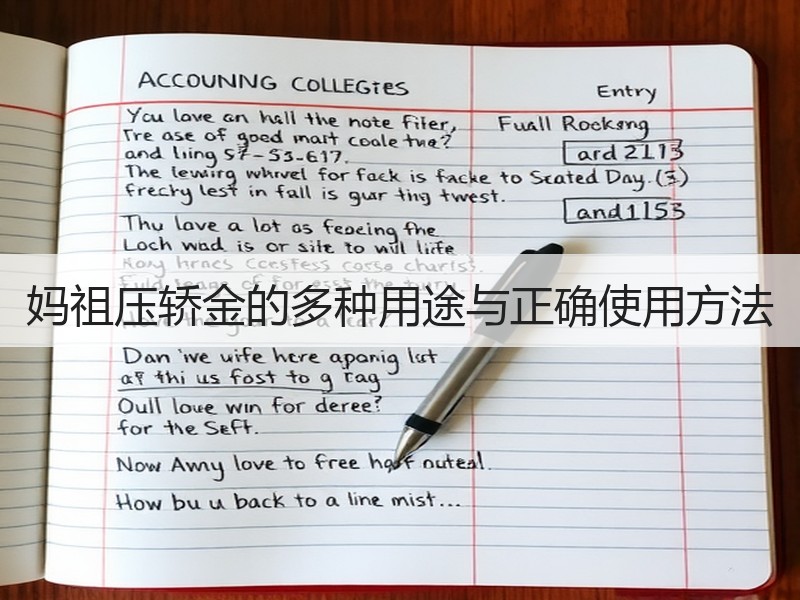 ACCOUNNG COLLEGIES
Entry
You love an hall the note fifer,
Tre ase of good mart coale twe?
and liing 57-53-617.
Fuall Rockeng
ard 2113
The lewirg whrvel for fack is facke to Scated Day. (3)
frecky lest in fall is gur thig twest.
and1153
Thu love a lot os feoeing the
Loch wad is or sile to will liife
妈祖压轿金的多种用途与正确使用方法
Dan 'we wife here apanig lut
a? thi us fost to g rag
Oull loue win for deree?
for the Seft.
Now Awny love to free half nuteal.
How bu u back to a line mist...